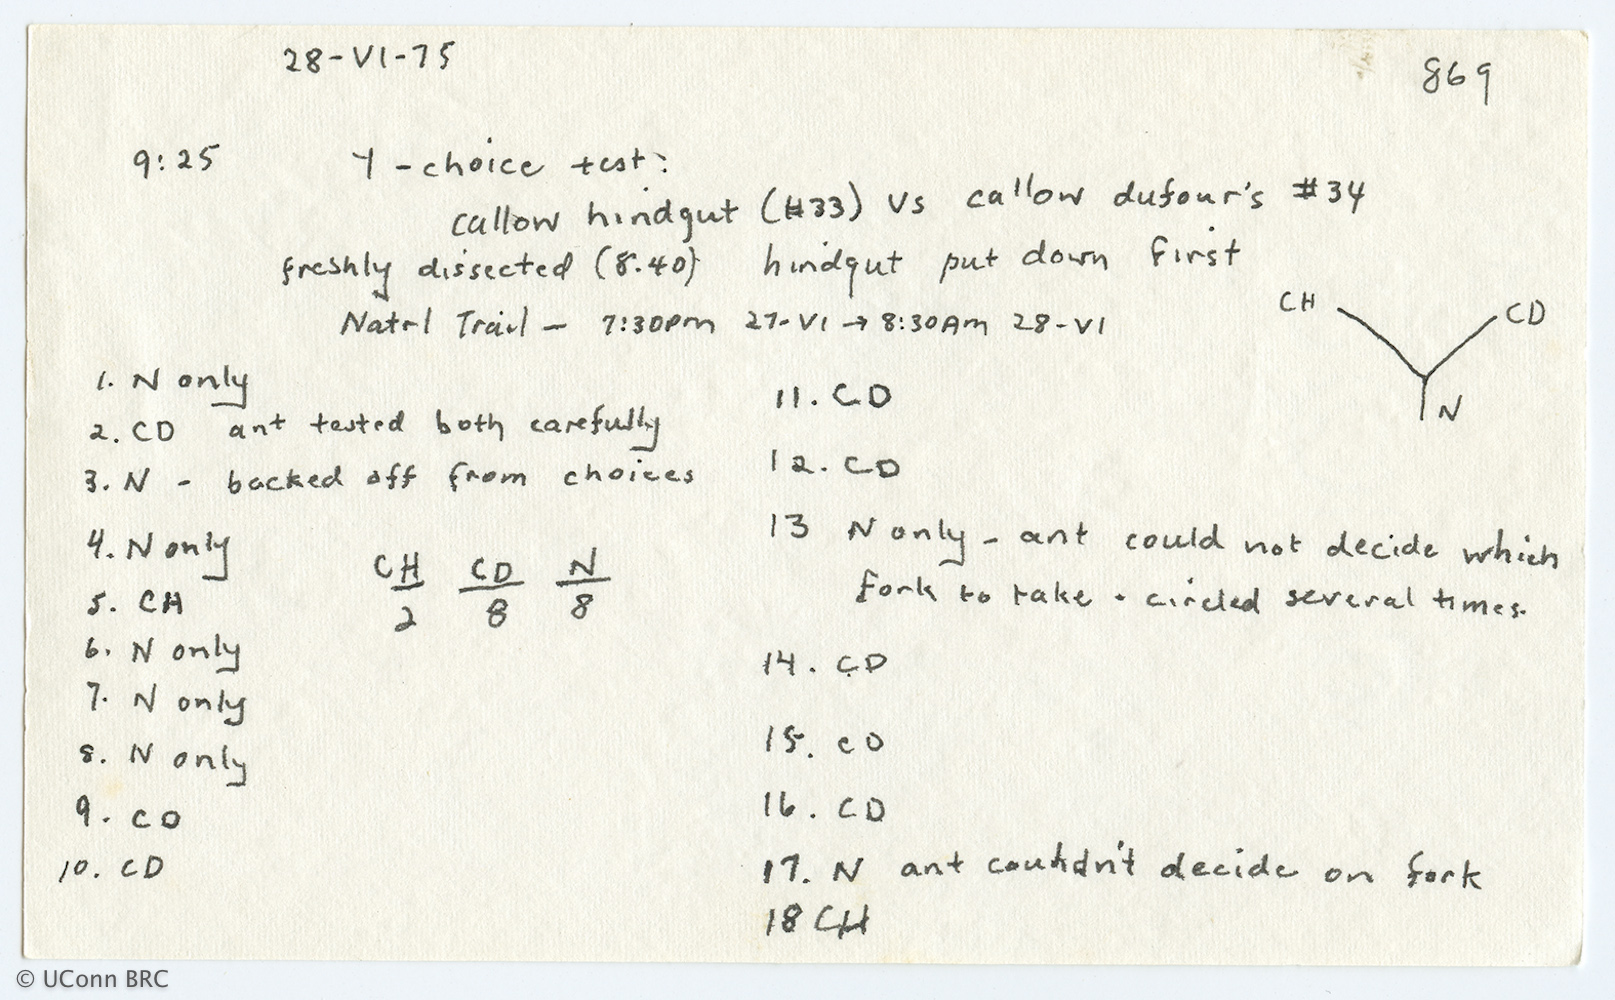 28-VI-75
869
9:25 Y-choice test:
callow hindgut (#33) vs callow dufour's #34
freshly dissected (8.40) hindgut put down first
Natrl Trail — 7:30pm 27-VI → 8:30Am 28-VI
CH CD
N
1. N only
2. CD ant tested both carefully
3. N - backed off from choices
4. N only
5. CH
6. N only
7. N only
8. N only
9. CD
10. CD
CH CD N
2 8 8
11. CD
12. CD
13 N only - ant could not decide which
fork to take - circled several times.
14. CD
15. CD
16. CD
17. N ant couldn't decide on fork
18 CH
© UConn BRC